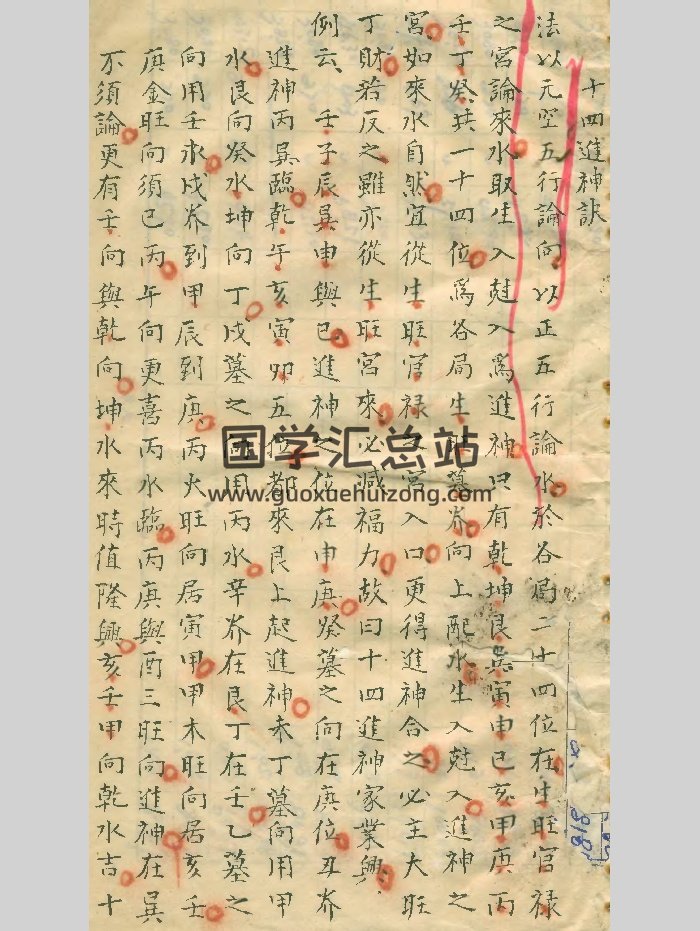 十四進神訣
法以元空五行論向以正五行論水於各局二十四位在生旺官祿
之宮論來水取生入尅入為進神只有乾坤艮巽寅申巳亥甲庚丙
壬丁癸共一十四位為各局生旺墓养向上配水生入尅入進神之
宮如來水自然宜從生旺官禄之宮入口更得進神合之必主大旺
丁財若反之雖亦從生旺宮來必减福力故曰十四進神家業興
例云 壬子辰巽申與巳進神之位在申庚癸墓之向在庚位丑养
進神丙巽臨乾午亥寅卯五位都來艮上起進神未丁墓向用甲
水艮向癸水坤向丁戌墓之向用丙水辛养在艮丁在壬乙墓之
向用壬水戌养到甲辰到庚丙火旺向居寅甲甲木旺向居亥壬
庚金旺向須巳丙午向更喜丙水臨丙庚與酉三旺向進神在巽
不須論更有壬向與乾向坤水來時值隆興亥壬甲向乾水吉十
国学汇总站
www.guoxuehuizong.com
818